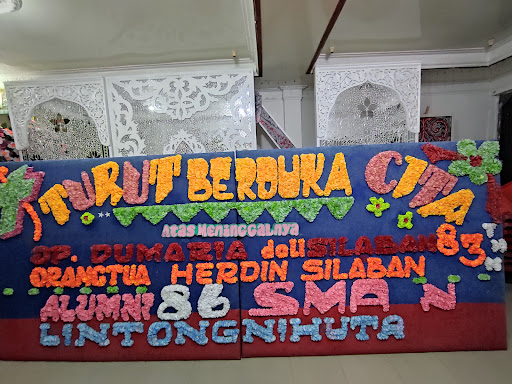 TURUT BERDUKA CITA
Atas Menanggalnya
OP. DUMARIA deli SILABAN 83 THN
ORANGTUA HERDIN SILABAN
ALUMNI 86 SMA N
LINTONGNIHUTA